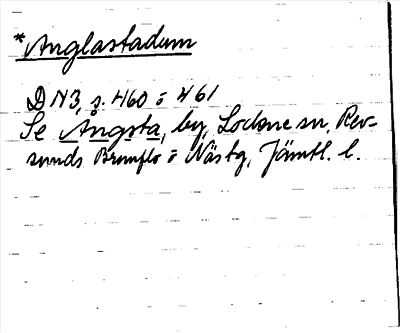 *Anglastadum
DN3, s. 460 o 461
Se Ångsta, by, Lockne sn, Rev-
sunds Brunflo o Näs tg, Jämtl. l.